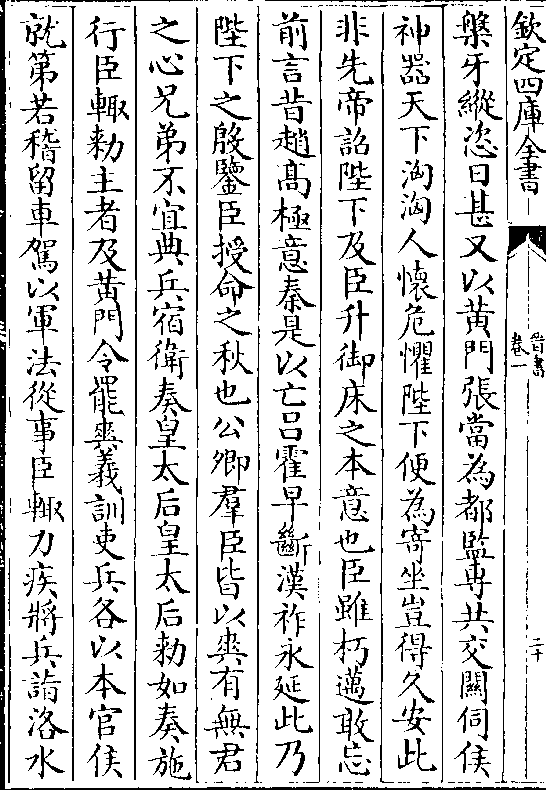 欽定四庫全書
晉書
卷一
二十
槃牙縱恣日甚又以黄門張當為都監專共交關伺侯
神器天下洶洶人懷危懼陛下便為寄坐豈得久安此
非先帝詔陛下及臣升御床之本意也臣雖朽邁敢忘
前言昔趙髙極意秦是以亡吕霍早斷漢祚永延此乃
陛下之殷鑒臣授命之秋也公卿羣臣皆以爽有無君
之心兄弟不宜典兵宿衛奏皇太后皇太后勅如奏施
行臣輒勅主者及黄門令罷爽羲訓吏兵各以本官侯
就第若稽留車駕以軍法從事臣輒力疾將兵詣洛水